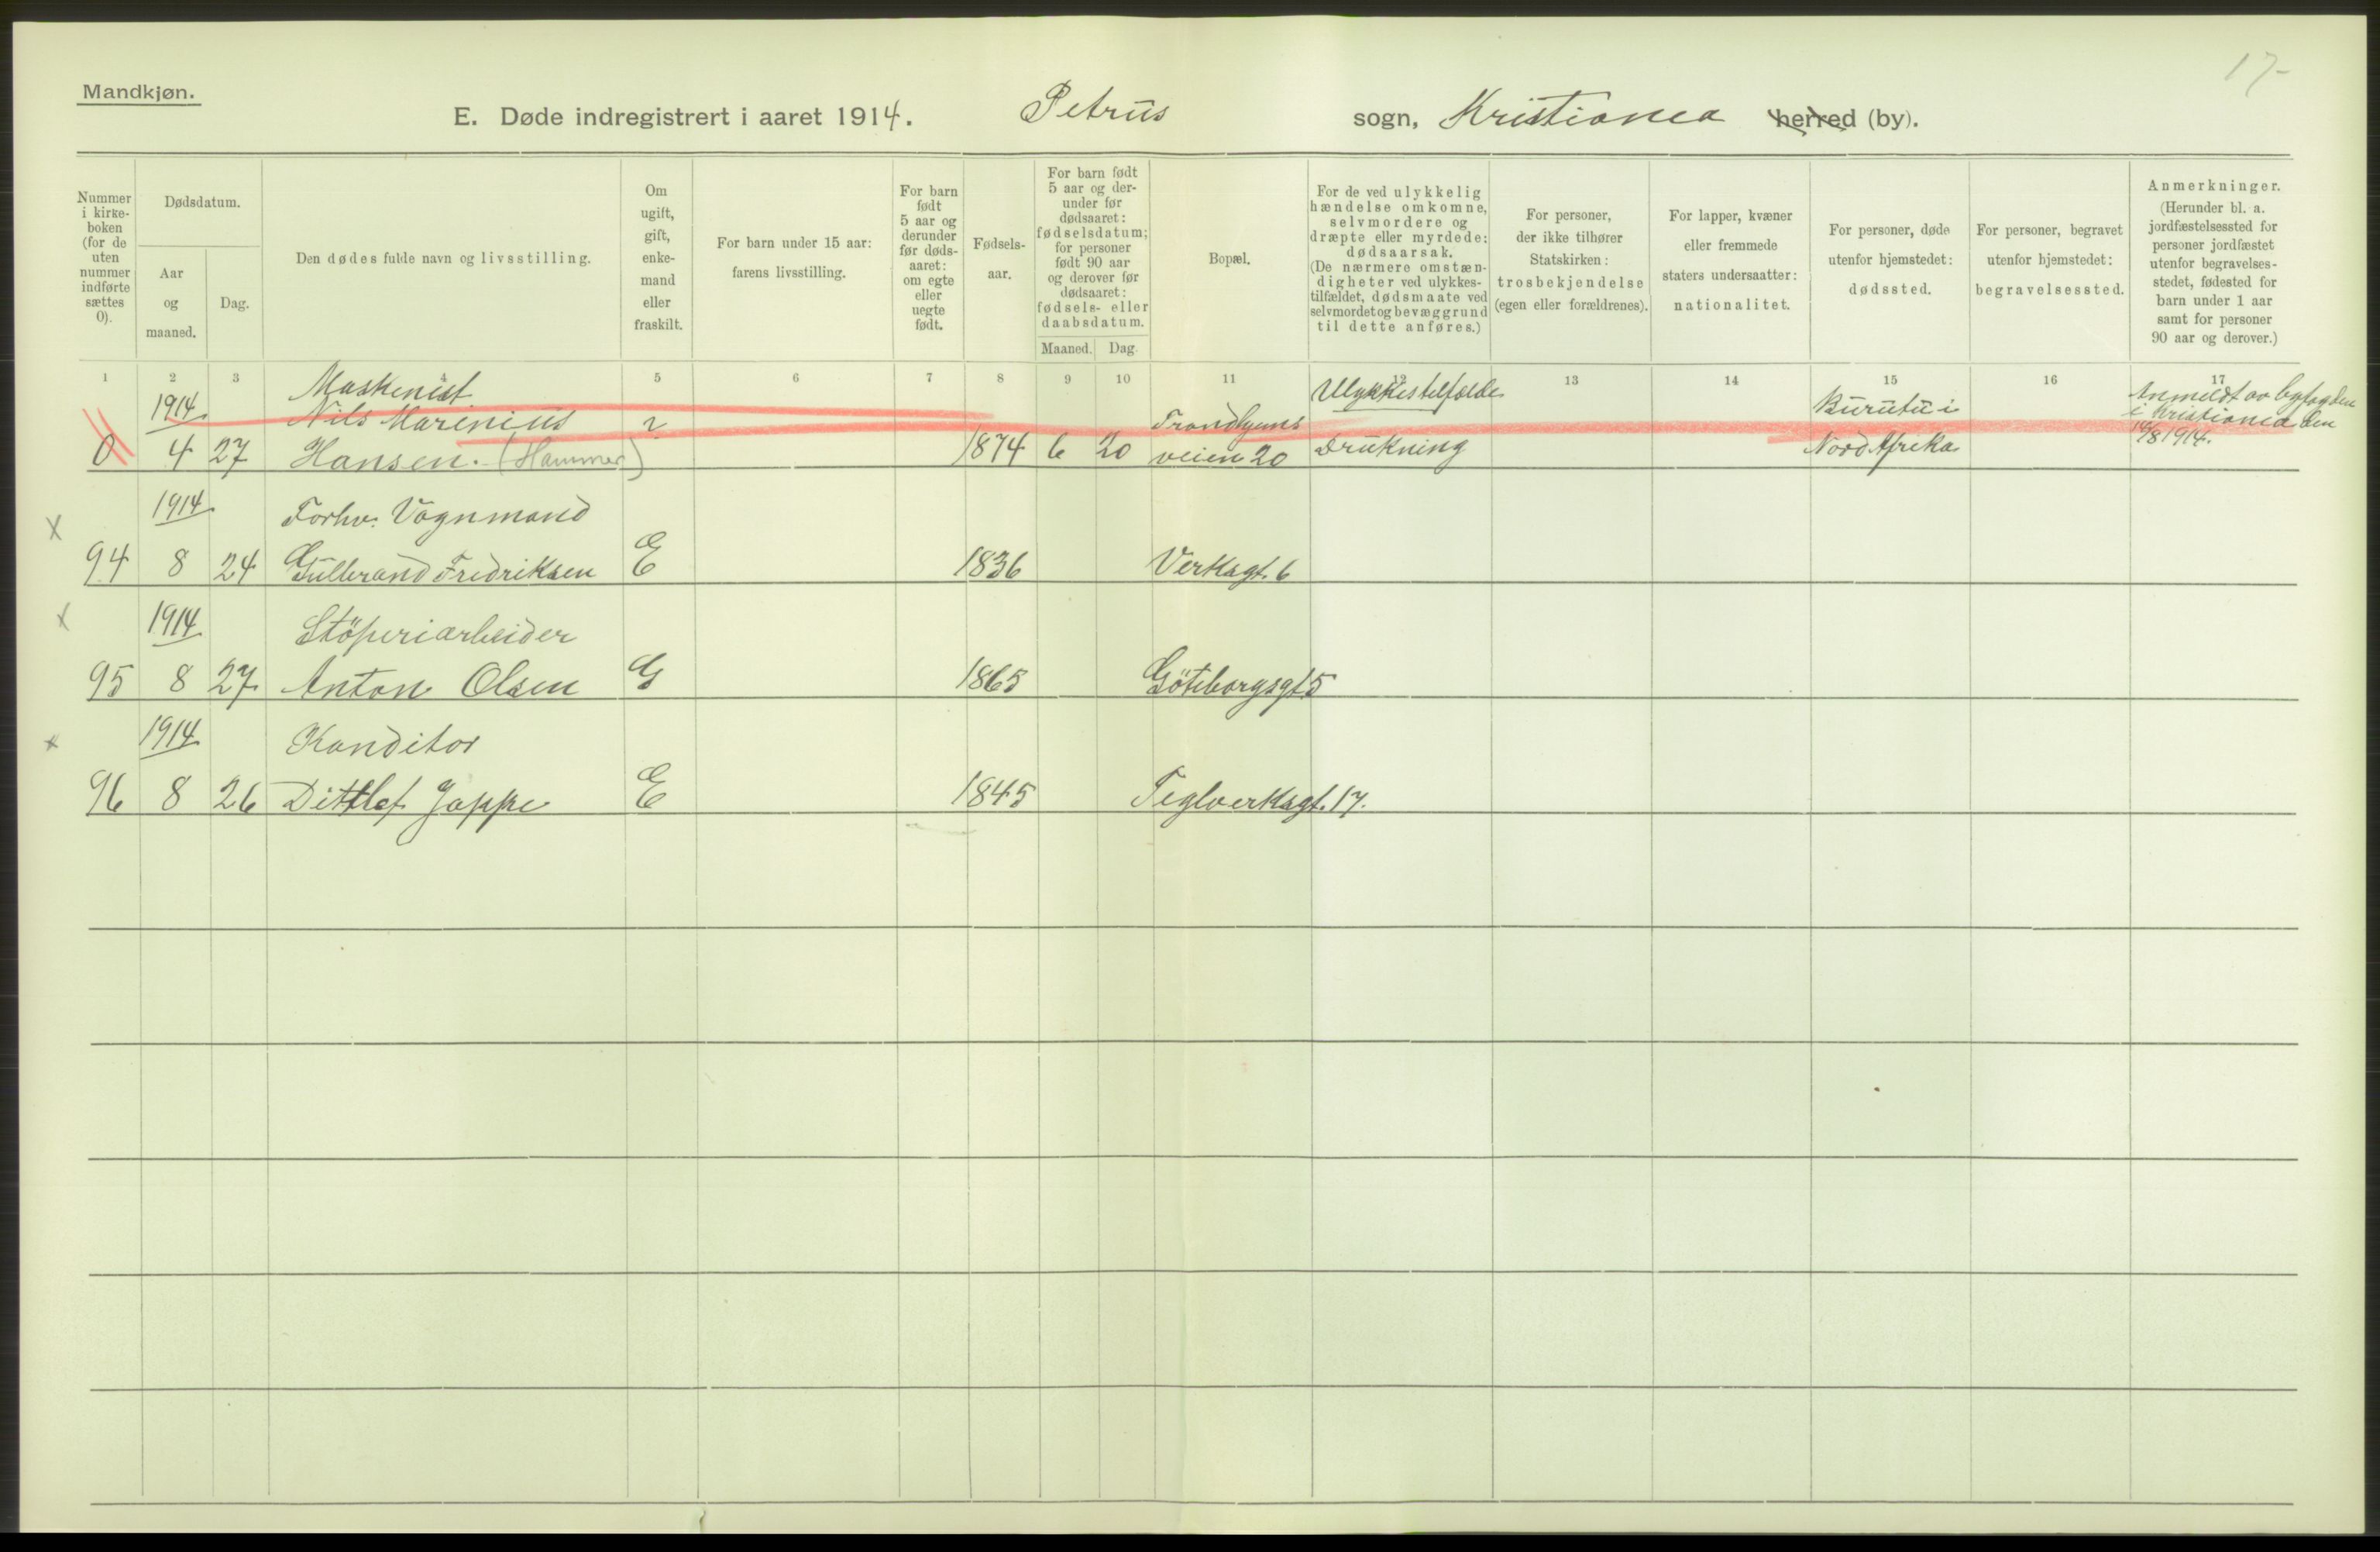 17-
Mandkjøn.
E. Døde indregistrert i aaret 1914. Petrus sogn, Kristiania herred (by).
Nummer i kirke-boken (for de uten nummer indførte sættes 0).
Dødsdatum.
Aar og maaned.
Dag.
Den dødes fulde navn og livsstilling.
Om ugift, gift, enke-mand eller fraskilt.
For barn under 15 aar: farens livsstilling.
For barn født 5 aar og derunder før døds-aaret: om egte eller uegte født.
Fødsels-aar.
For barn født 5 aar og der-under før dødsaaret: fødselsdatum; for personer født 90 aar og derover før dødsaaret: fødsels- eller daabsdatum.
Maaned. Dag.
Bopæl.
For de ved ulykkelig hændelse omkomne, selvmordere og dræpte eller myrdede: dødsaarsak. (De nærmere omstæn-digheter ved ulykkes-tilfældet, dødsmaate ved selvmordet og bevæggrund til dette anføres.)
For personer, der ikke tilhører Statskirken: trosbekjendelse (egen eller forældrenes).
For lapper, kvæner eller fremmede staters undersaatter: nationalitet.
For personer, døde utenfor hjemstedet: dødssted.
For personer, begravet utenfor hjemstedet: begravelsessted.
Anmerkninger. (Herunder bl. a. jordfæstelsessted for personer jordfæstet utenfor begravelses-stedet, fødested for barn under 1 aar samt for personer 90 aar og derover.)
1 2 3 4 5 6 7 8 9 10 11 12 13 14 15 16 17
Maskenist Ulykkestilfælde
1914 Nils Marinius ? Trondhjems Burutu i Anmeldt av byfogden
i Kristiania den
0 4 27 Hansen. (Hammer) 1874 6 20 veien 20 Drukning Nord Afrika 14/8 1914.
1914 Forhv. Vognmand
X
94 8 24 Gulbrand Fredriksen E 1836 Verksgt. 6
X 1914 Stöperiarbeider
95 8 27 Anton Olsen G 1865 Göteborgsgt 5
X 1914 Konditor
96 8 26 Dittlef Jappe E 1845 Teglverksgt. 17.